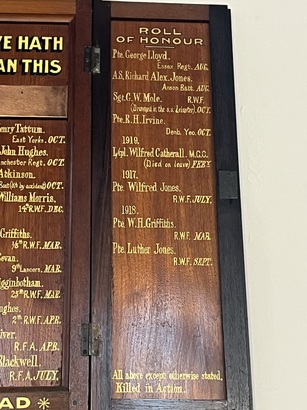 VE HATH
AN THIS
enry Tattum.
East Yorks, OCT.
John Hughes.
nchester Regt. OCT.
Atkinson.
by accident) OCT.
illiams Morris,
14th R.W.F. DEC.
Griffiths.
16th R.W.F. MAR.
evan.
9th Lancers, MAR.
igginbotham.
25th R.W.F. MAR.
ughes.
2nd R.W.F. APR.
iver.
R.F.A. APR.
Blackwell.
R.F.A. JULY.
AD
ROLL
OF HONOUR
Pte. George Lloyd.
Essex Regt. AUG.
A.S. Richard Alex. Jones.
Anson Batt. AUG.
Sgt. C.W. Mole. R.W.F.
(Drowned in the s.s. Leinster) OCT.
Pte. R.H. Irvine.
Denb. Yeo. OCT.
1919.
L/cpl. Wilfred Catherall. M.G.C.
(Died on leave) FEBY.
1917.
Pte Wilfred Jones.
R.W.F. JULY.
1918.
Pte. W.H. Griffiths.
R.W.F. MAR.
Pte. Luther Jones.
R.W.F. SEPT.
All above except otherwise stated,
Killed in Action.